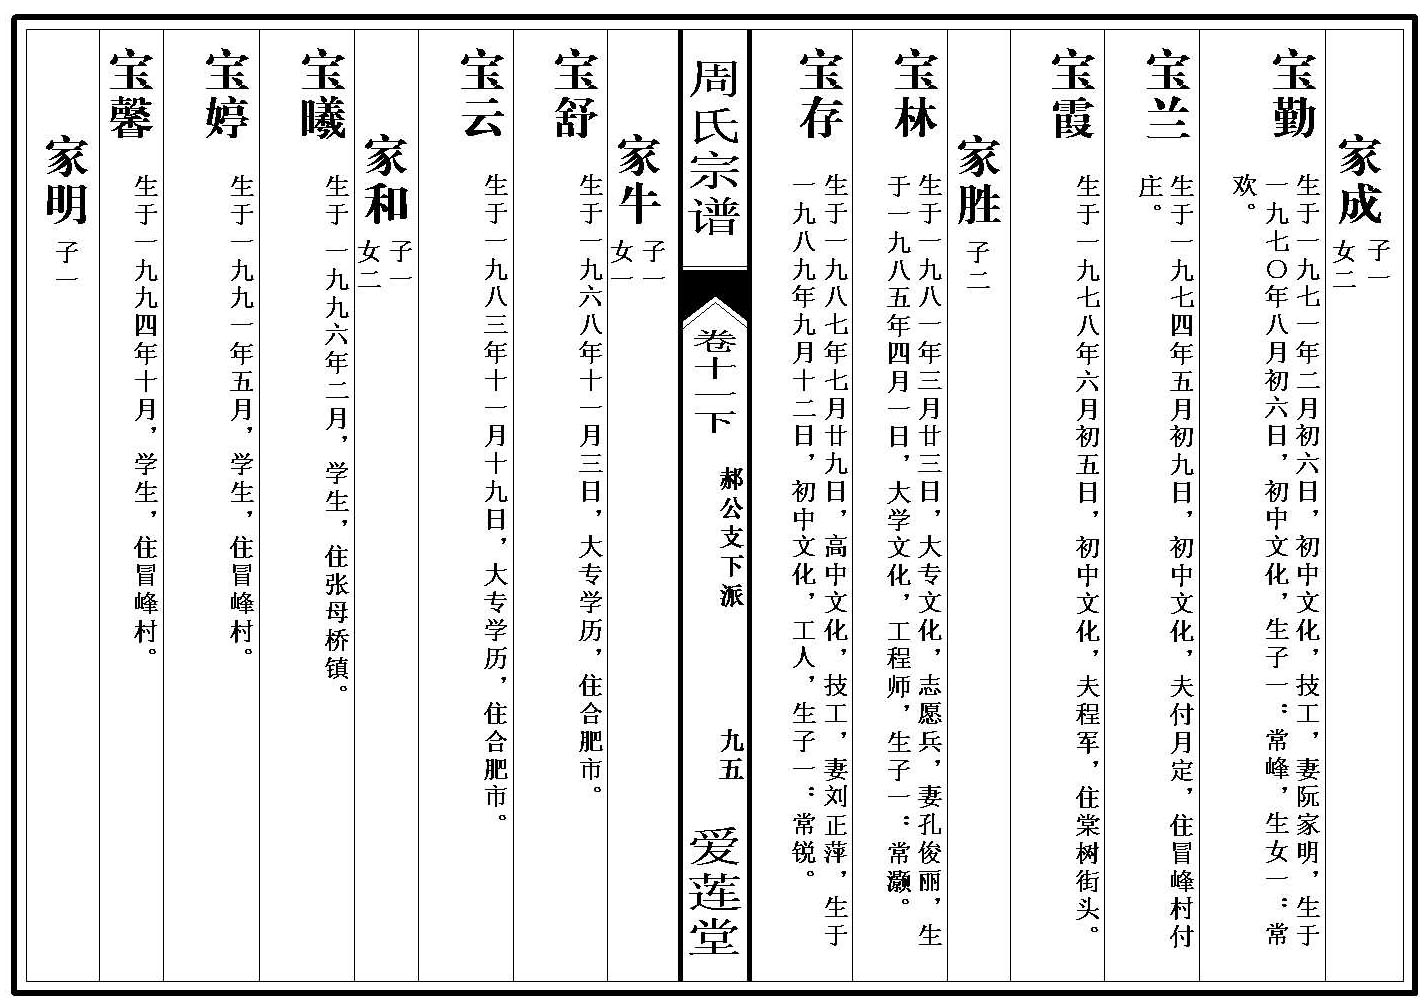 家成
子一
女二
宝勤
生于一九七一年二月初六日，初中文化，技工，妻阮家明，生于
一九七〇年八月初六日，初中文化，生子一：常峰，生女一：常
欢。
宝兰
生于一九七四年五月初九日，初中文化，夫付月定，住冒峰村付
庄。
宝霞
生于一九七八年六月初五日，初中文化，夫程军，住棠树街头。
家胜
子二
宝林
生于一九八一年三月廿三日，大专文化，志愿兵，妻孔俊丽，生
于一九八五年四月一日，大学文化，工程师，生子一：常灏。
宝存
生于一九八七年七月廿九日，高中文化，技工，妻刘正萍，生于
一九八九年九月十二日，初中文化，工人，生子一：常锐。
周氏宗谱
卷十一下
郝公支下派
九五
爱莲堂
家牛
子一
女一
宝舒
生于一九六八年十一月三日，大专学历，住合肥市。
宝云
生于一九八三年十一月十九日，大专学历，住合肥市。
家和
子一
女二
宝曦
生于一九九六年二月，学生，住张母桥镇。
宝婷
生于一九九一年五月，学生，住冒峰村。
宝馨
生于一九九四年十月，学生，住冒峰村。
家明
子一